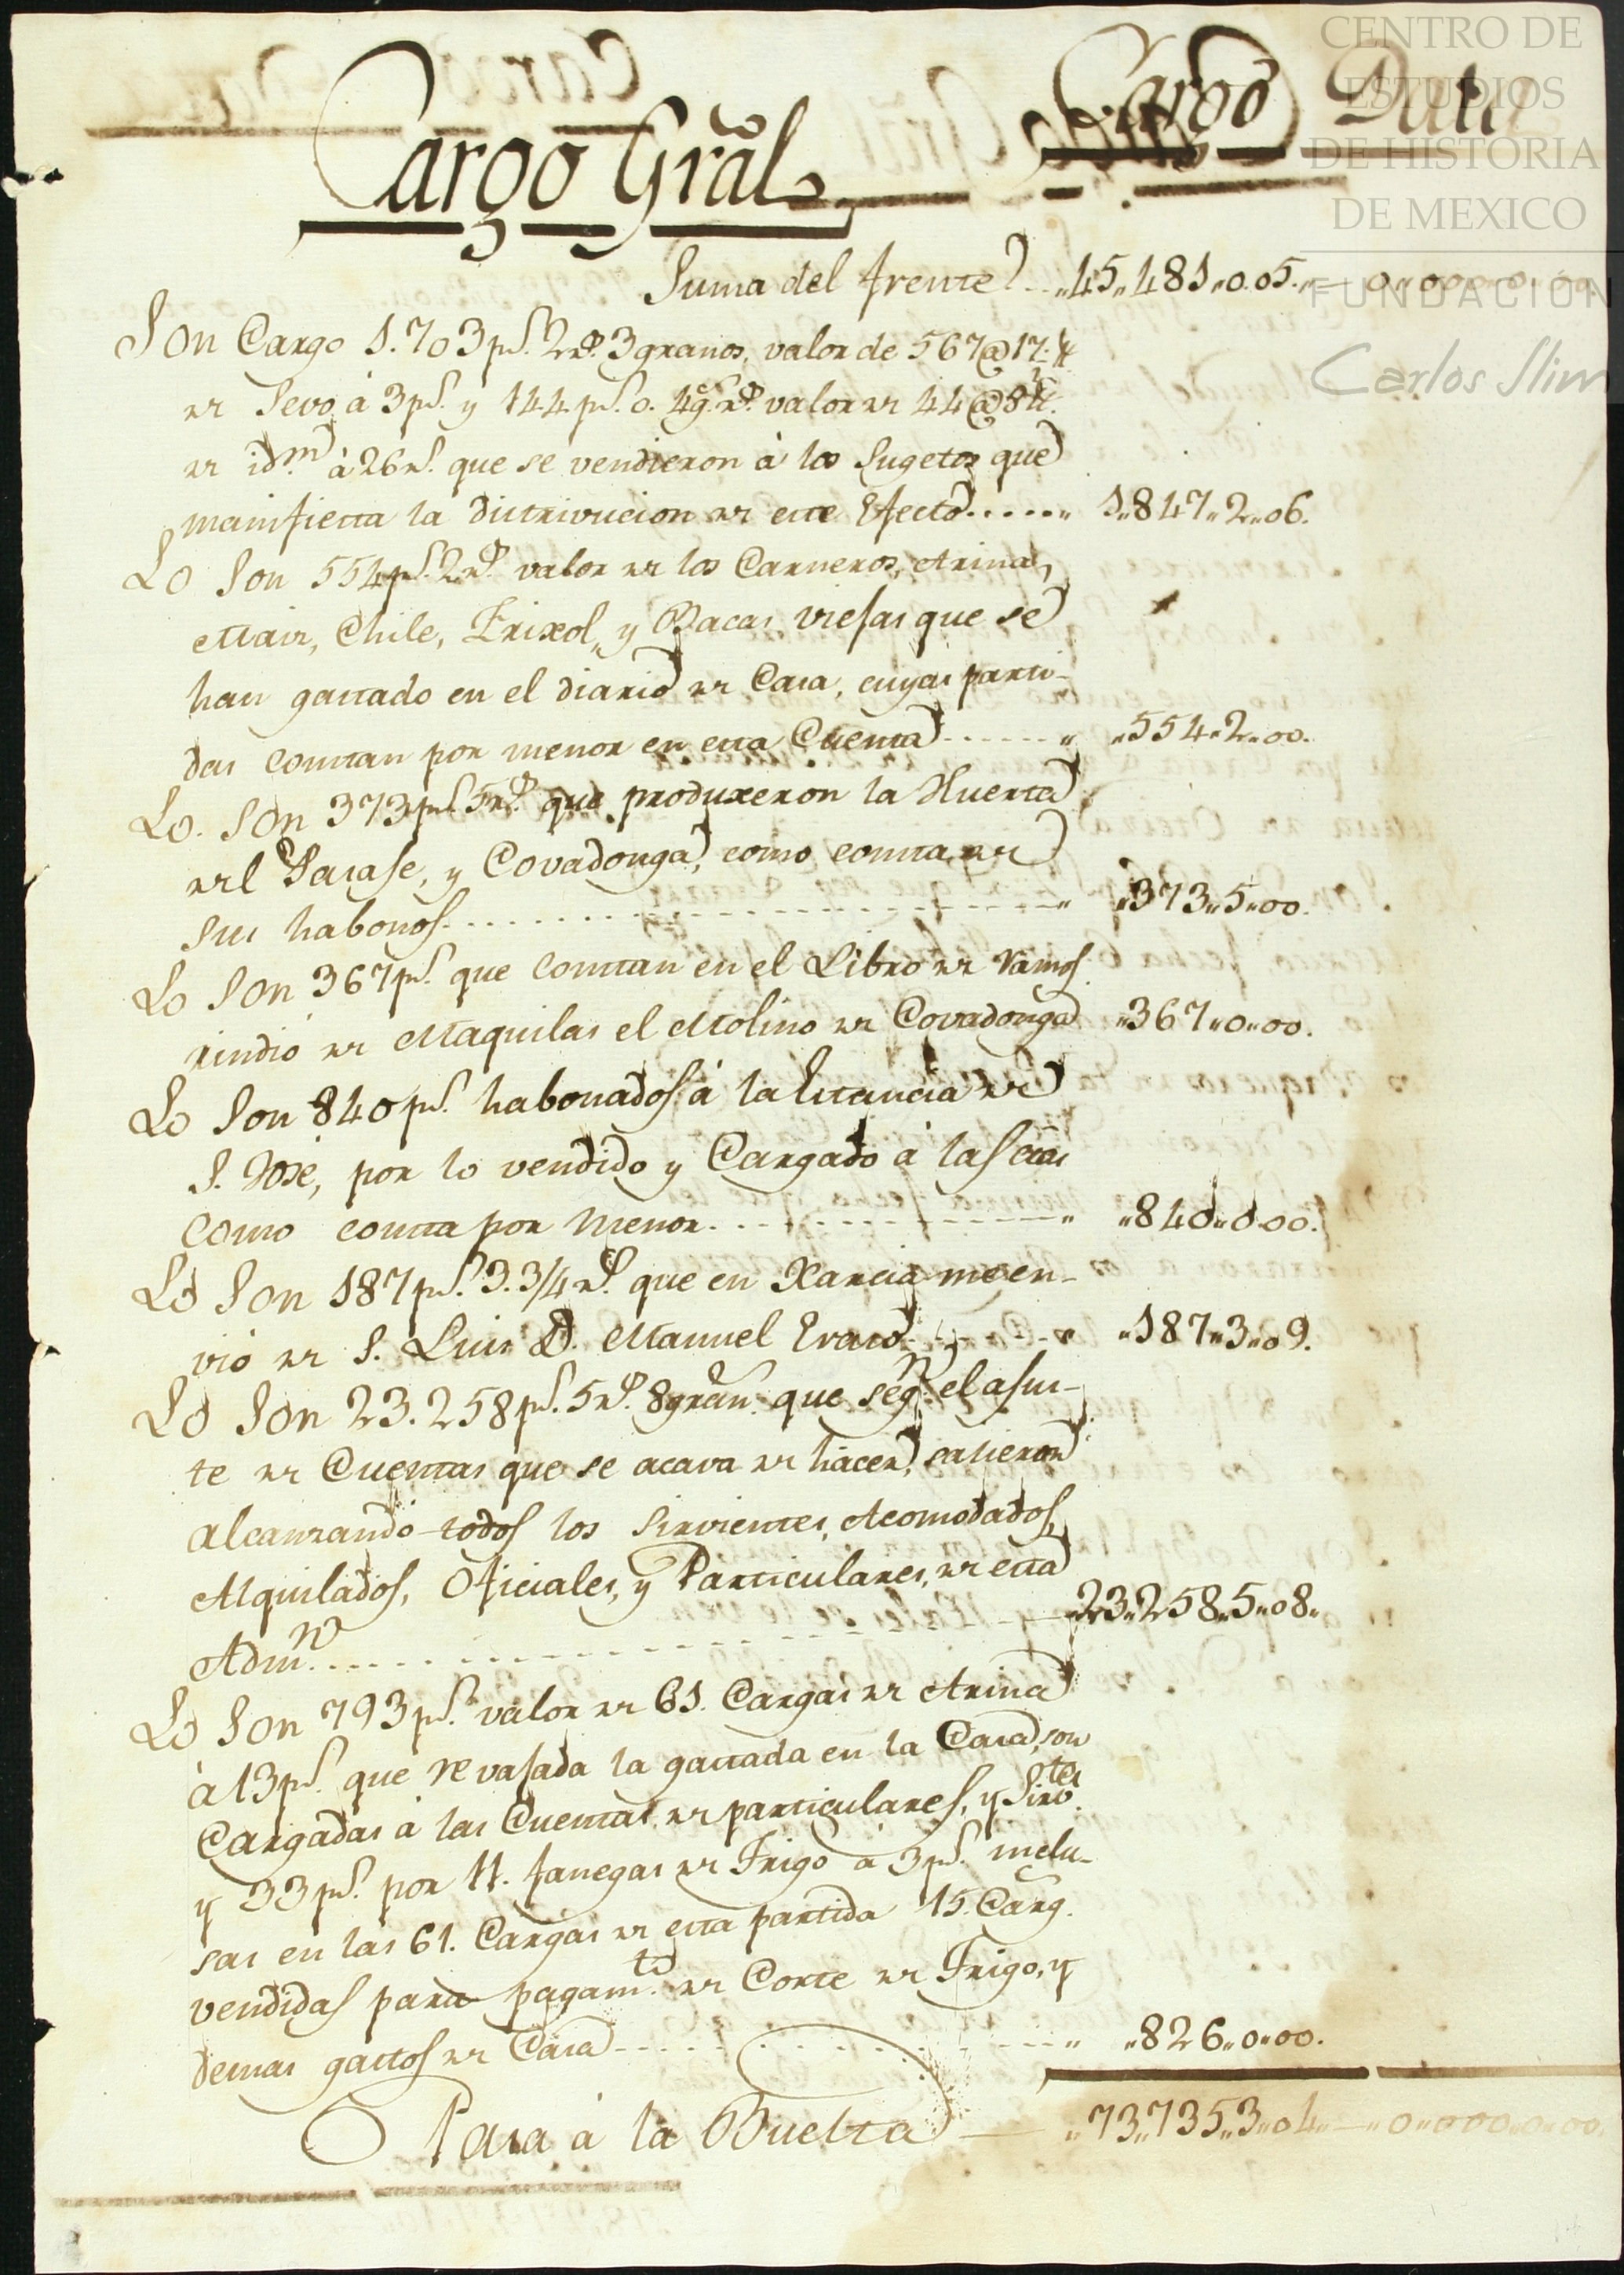 CENTRO DE
ESTUDIOS
DE HISTORIA
DE MEXICO
FUNDACIÓN
Carlos Slim
Cargo Data
Cargo Grãl
Suma del frente „45„481„0.05„ — 0„000„0„00
Son Cargo 1.703 p.s 2 r.s 3 granos, valor de 567 @ 17 ℔
de Sevo à 3 p.s y 144 p.s 0. 4 g.s r.s valor de 44 @ 8 ℔.
de id.m à 26 r.s que se vendieron à los Sugetos que
manifiesta la distrivucion de este Efecto...... 1„847„2„06.
Lo Son 554 p.s 2 r.s valor de los Carneros, Arina,
Maiz, Chile, Frixol, y Bacas viejas que se
han gastado en el diario de Casa, cuyas parti-
das constan por menor en esta Cuenta------„ „554„2„00.
Lo. Son 373 p.s 5 r.s que produxeron la Huerta
del Jaraje, y Covadonga, como consta de
sus habonos.---------------„ „373„5„00.
Lo Son 367 p.s que constan en el Libro de Ramos
rindio de Maquilas el Molino de Covadonga „367„0„00.
Lo Son 840 p.s habonados à la Estancia de
S. Jose, por lo vendido y Cargado à las ctas
como consta por menor.-----------„ „840„0„00.
Lo Son 187 p.s 3.3/4 r.s que en Xarcia me en-
vió de S. Luis D. Manuel Eraso---------„ „187„3„09.
Lo Son 23.258 p.s 5 r.s 8 gran.s que seg.n el ajus-
te de Cuentas que se acava de hacer, salieron
alcanzando todos los Sirvientes, Acomodados,
Alquilados, Oficiales, y Particulares, de esta
Adm.n------------------23„258„5„08„
Lo Son 793 p.s valor de 61. Cargas de Arina
à 13 p.s que revajada la gastada en la Casa, son
Cargadas à las Cuentas de particulares, y Sirv.tes
y 33 p.s por 11. fanegas de Trigo à 3 p.s inclu-
sas en las 61. Cargas de esta partida 15. Carg.s
vendidas para pagam.to de Corte de Trigo, y
demas gastos de Casa-------------„ „826„0„00.
Pasa à la Buelta — „73„735„3„04„ — „0„000„0„00„